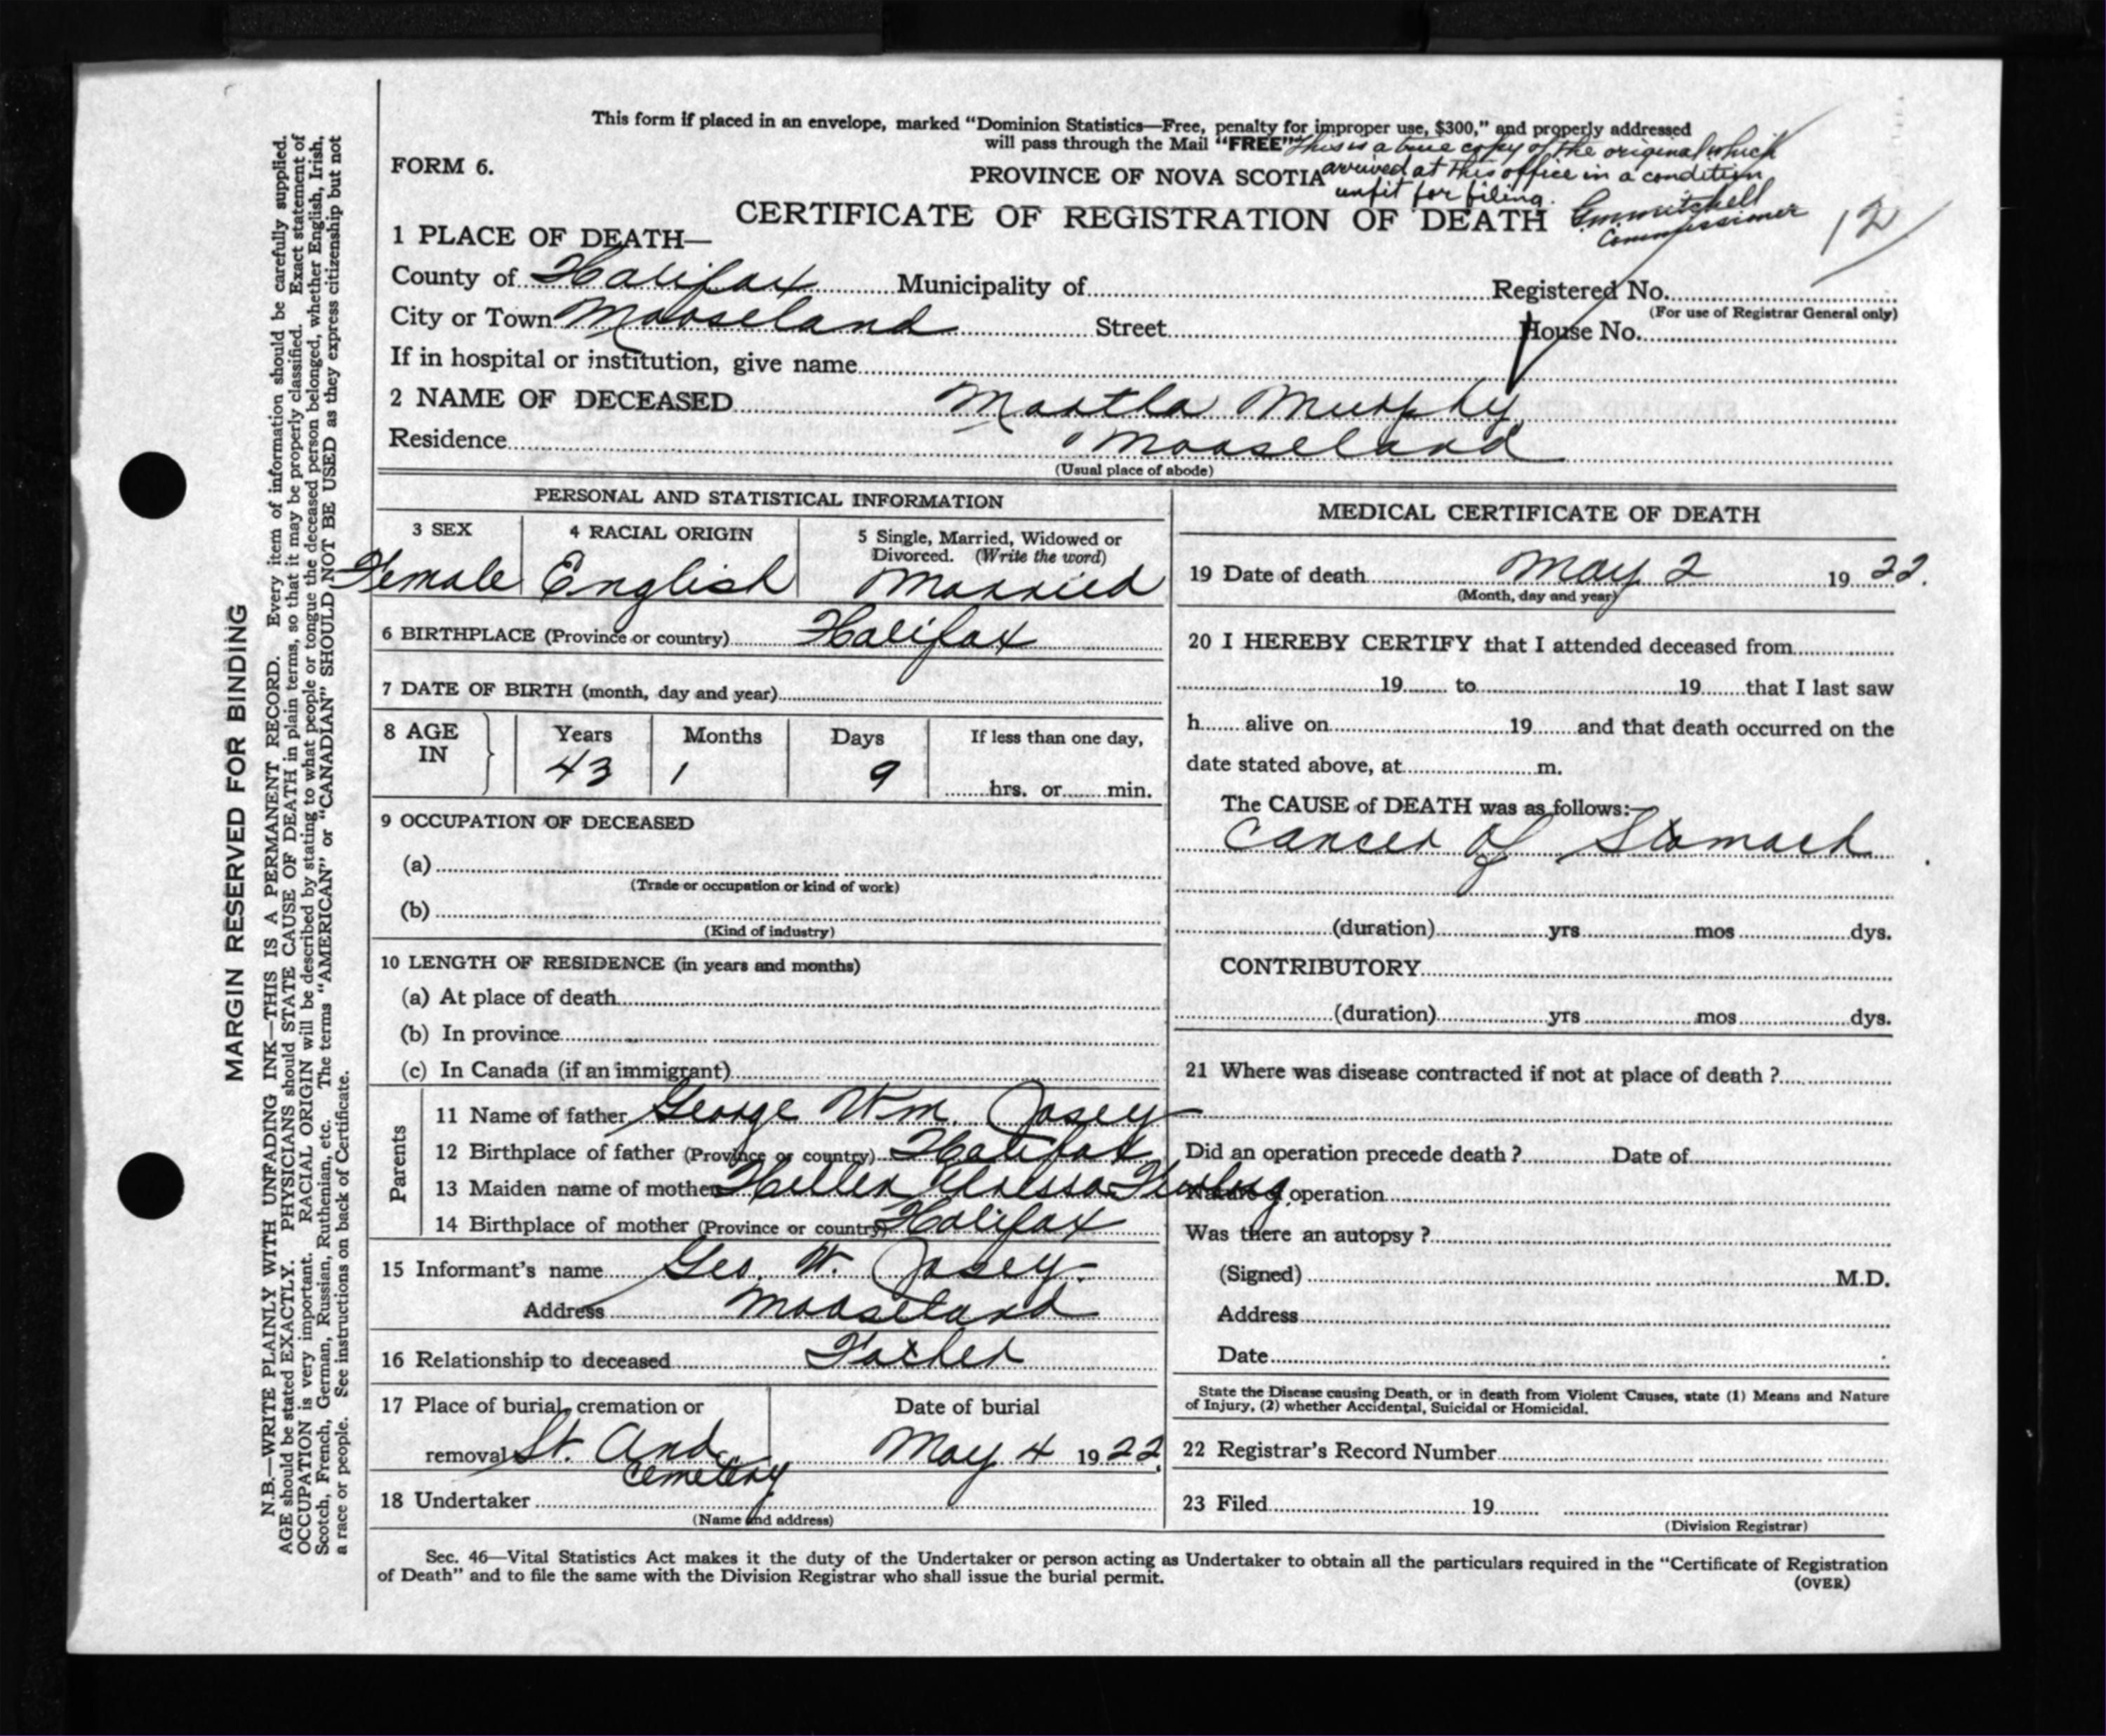 This form if placed in an envelope, marked "Dominion Statistics—Free, penalty for improper use, $300," and properly addressed
will pass through the Mail "FREE" This is a true copy of the original which
FORM 6.
PROVINCE OF NOVA SCOTIA arrived at this office in a condition
unfit for filing.
CERTIFICATE OF REGISTRATION OF DEATH
Commissioner
12
1 PLACE OF DEATH—
County of Halifax Municipality of Registered No.
(For use of Registrar General only)
City or Town Mooseland Street House No.
If in hospital or institution, give name
2 NAME OF DECEASED Martha Murphy
Residence Mooseland
(Usual place of abode)
PERSONAL AND STATISTICAL INFORMATION
3 SEX 4 RACIAL ORIGIN 5 Single, Married, Widowed or
Divorced. (Write the word)
Female English Married
6 BIRTHPLACE (Province or country) Halifax
7 DATE OF BIRTH (month, day and year)
8 AGE IN Years Months Days If less than one day,
43 1 9 hrs. or min.
9 OCCUPATION OF DECEASED
(a)
(Trade or occupation or kind of work)
(b)
(Kind of industry)
10 LENGTH OF RESIDENCE (in years and months)
(a) At place of death
(b) In province
(c) In Canada (if an immigrant)
Parents
11 Name of father George Wm. Jasey
12 Birthplace of father (Province or country) Halifax
13 Maiden name of mother Hellen
14 Birthplace of mother (Province or country) Halifax
15 Informant's name Geo. W. Jasey.
Address Mooseland
16 Relationship to deceased Father
17 Place of burial, cremation or Date of burial
removal St. And. May 4 1922
Cemetery
18 Undertaker
(Name and address)
MEDICAL CERTIFICATE OF DEATH
19 Date of death May 2 1922.
(Month, day and year)
20 I HEREBY CERTIFY that I attended deceased from
19 to 19 that I last saw
h alive on 19 and that death occurred on the
date stated above, at m.
The CAUSE of DEATH was as follows:—
Cancer of Stomach
(duration) yrs mos dys.
CONTRIBUTORY
(duration) yrs mos dys.
21 Where was disease contracted if not at place of death ?
Did an operation precede death ? Date of
Nature of operation
Was there an autopsy ?
(Signed) M.D.
Address
Date
State the Disease causing Death, or in death from Violent Causes, state (1) Means and Nature
of Injury, (2) whether Accidental, Suicidal or Homicidal.
22 Registrar's Record Number
23 Filed 19
(Division Registrar)
Sec. 46—Vital Statistics Act makes it the duty of the Undertaker or person acting as Undertaker to obtain all the particulars required in the "Certificate of Registration
of Death" and to file the same with the Division Registrar who shall issue the burial permit.
(OVER)
MARGIN RESERVED FOR BINDING
N.B.—WRITE PLAINLY WITH UNFADING INK—THIS IS A PERMANENT RECORD. Every item of information should be carefully supplied.
AGE should be stated EXACTLY. PHYSICIANS should STATE CAUSE OF DEATH in plain terms, so that it may be properly classified. Exact statement of
OCCUPATION is very important. RACIAL ORIGIN will be described by stating to what people or tongue the deceased person belonged, whether English, Irish,
Scotch, French, German, Russian, Ruthenian, etc. The terms "AMERICAN" or "CANADIAN" SHOULD NOT BE USED as they express citizenship but not
a race or people. See instructions on back of Certificate.